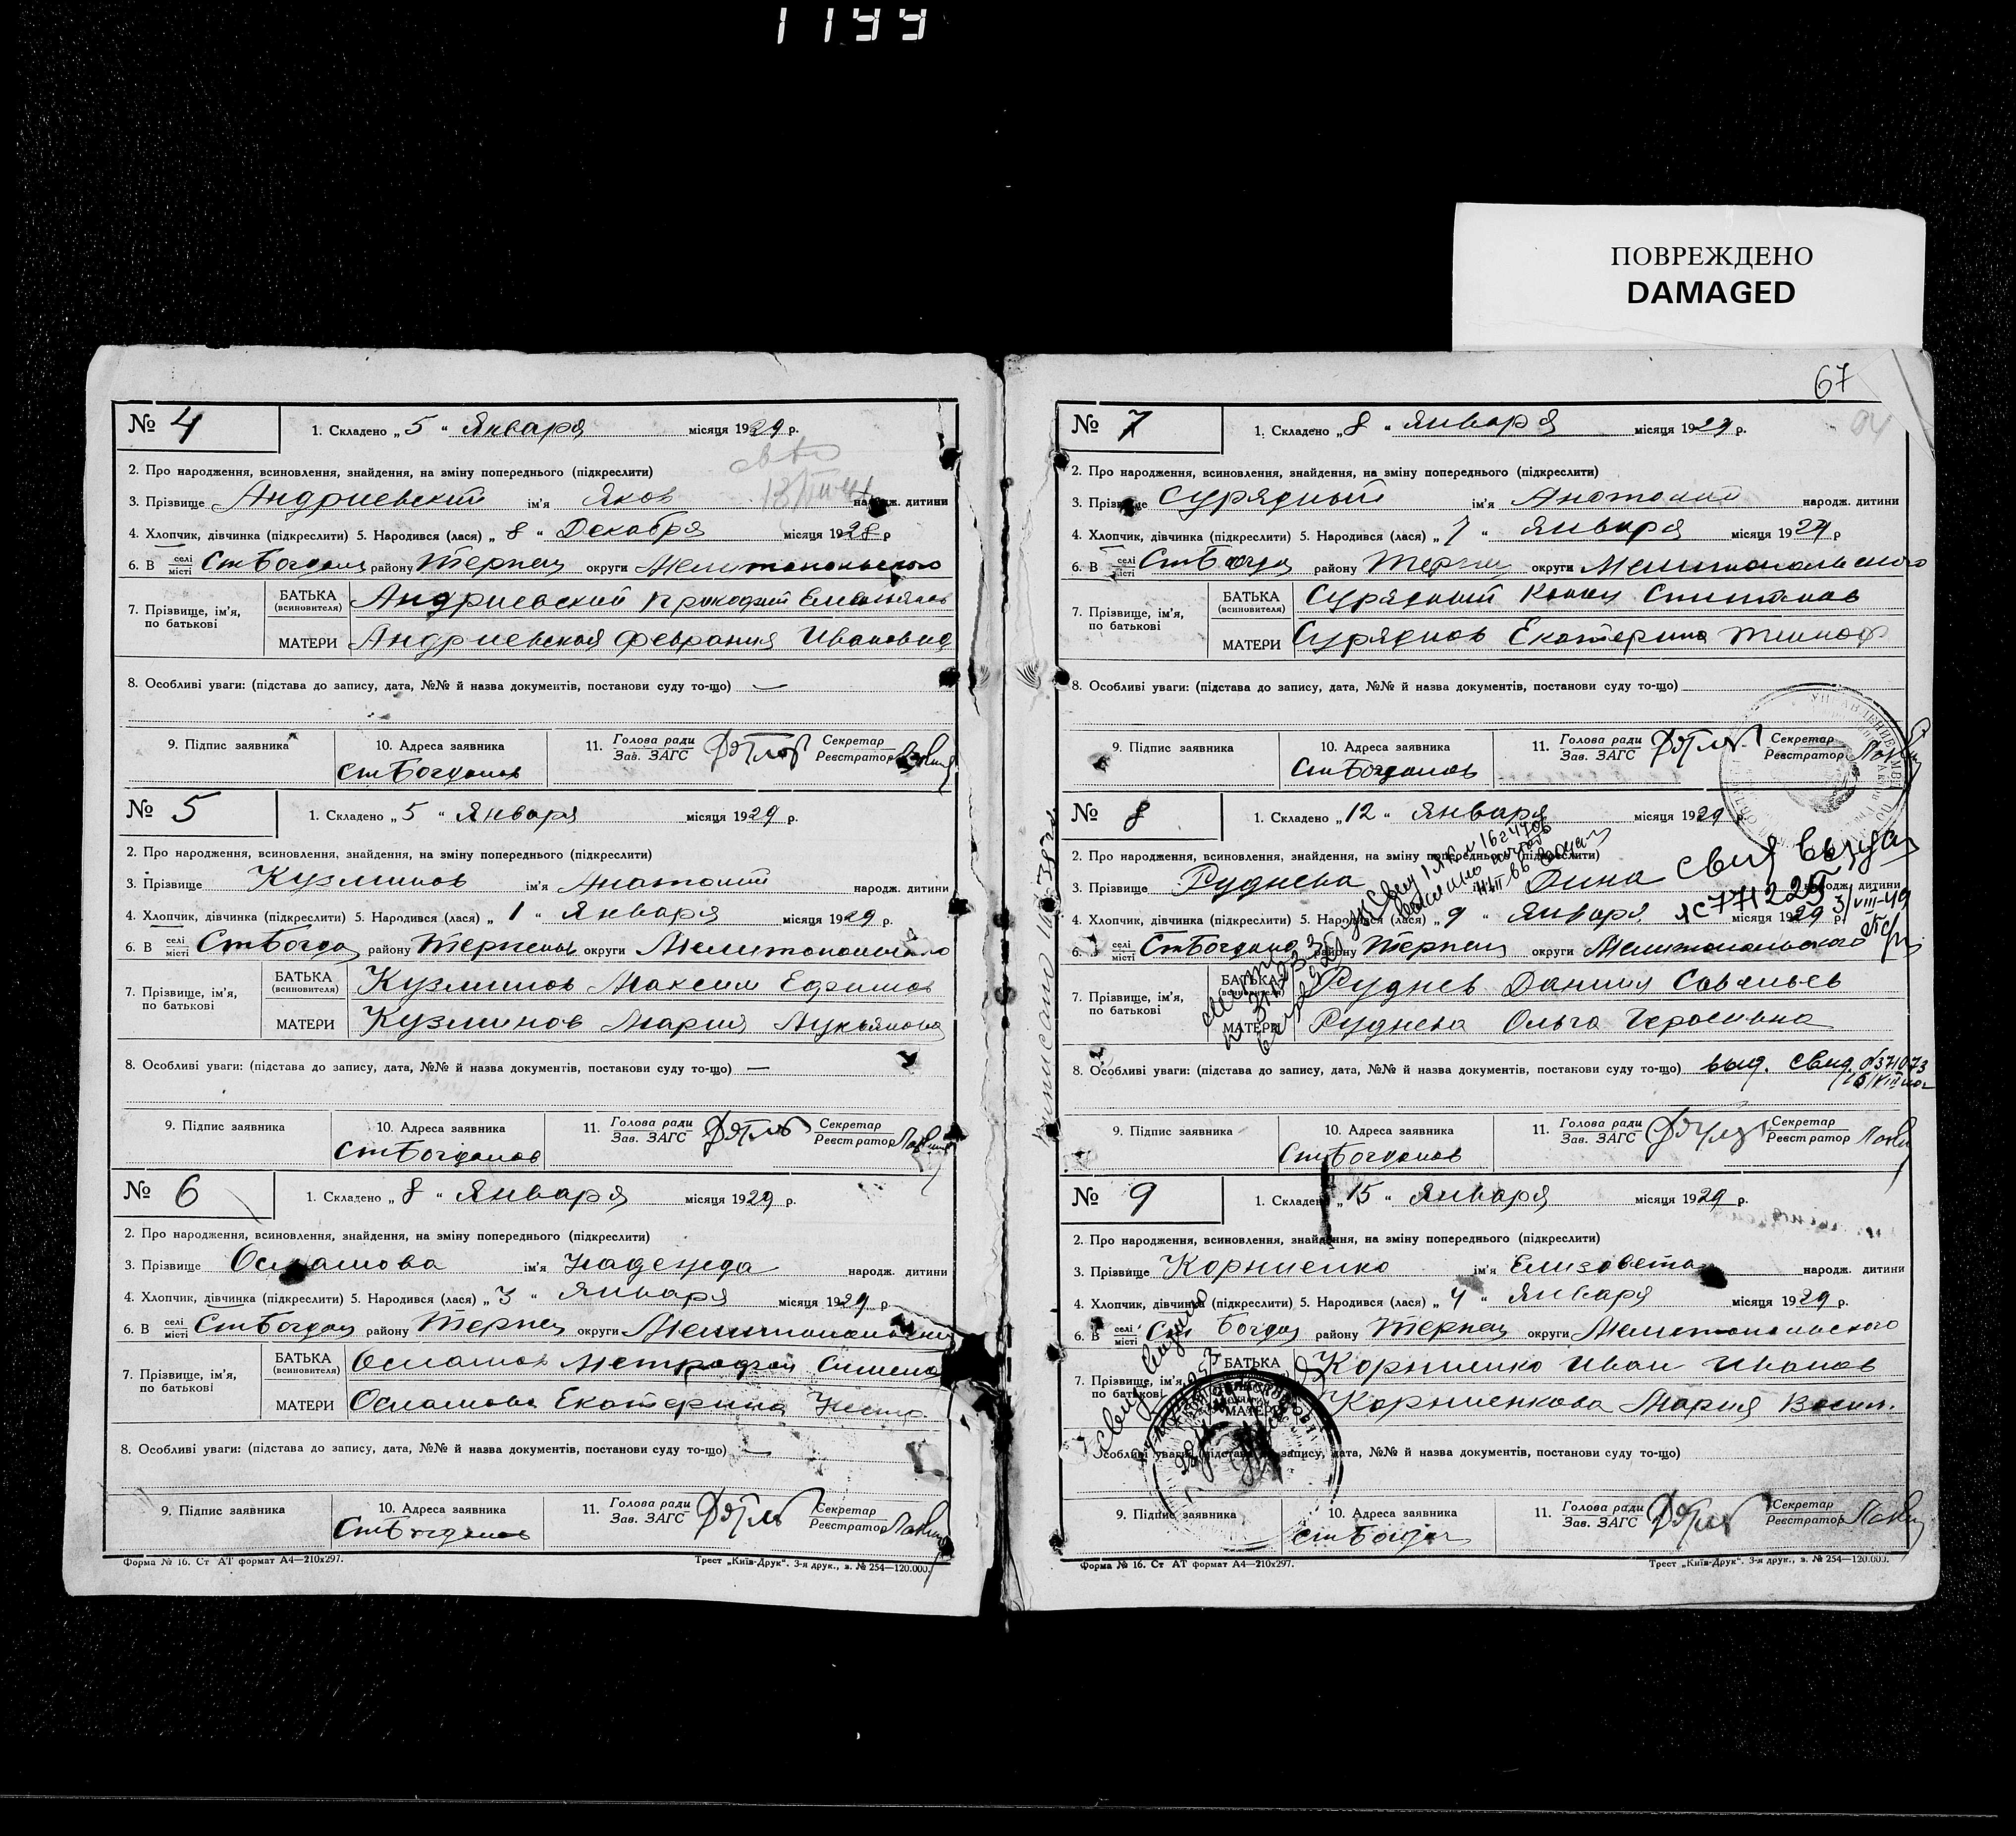 1199
ПОВРЕЖДЕНО
DAMAGED
№ 4
1. Складено „ 5 “ Января місяця 1929 р.
2. Про народження, всиновлення, знайдення, на зміну попереднього (підкреслити)
3. Прізвище Андриевский ім'я Яков народж. дитини
4. Хлопчик, дівчинка (підкреслити) 5. Народився (лася) „ 8 “ Декабря місяця 1928 р
6. В селі місті СтБогдан району Терпен округи Мелитопольского
7. Прізвище, ім'я, по батькові
БАТЬКА (всиновителя) Андриевский Прокофий Емельянов
МАТЕРИ Андриевская Феврания Ивановна
8. Особливі уваги: (підстава до запису, дата, №№ й назва документів, постанови суду то-що) —
9. Підпис заявника
10. Адреса заявника
СтБогданов
11. Голова ради Зав. ЗАГС
Секретар Реєстратор
№ 5
1. Складено „ 5 “ Января місяця 1929 р.
2. Про народження, всиновлення, знайдення, на зміну попереднього (підкреслити)
3. Прізвище Кузминов ім'я Анатолий народж. дитини
4. Хлопчик, дівчинка (підкреслити) 5. Народився (лася) „ 1 “ Января місяця 1929 р.
6. В селі місті СтБогда району Терпень округи Мелитопольского
7. Прізвище, ім'я, по батькові
БАТЬКА (всиновителя) Кузминов Максим Ефимов
МАТЕРИ Кузминов Мария Лукьянова
8. Особливі уваги: (підстава до запису, дата, №№ й назва документів, постанови суду то-що) —
9. Підпис заявника
10. Адреса заявника
СтБогданов
11. Голова ради Зав. ЗАГС
Секретар Реєстратор
№ 6
1. Складено „ 8 “ Января місяця 1929 р.
2. Про народження, всиновлення, знайдення, на зміну попереднього (підкреслити)
3. Прізвище Осмамова ім'я Надежда народж. дитини
4. Хлопчик, дівчинка (підкреслити) 5. Народився (лася) „ 3 “ Января місяця 1929 р.
6. В селі місті СтБогдан району Терпен округи Мелитопольский
7. Прізвище, ім'я, по батькові
БАТЬКА (всиновителя) Митрофан Симено
МАТЕРИ Екатерина Нестр
8. Особливі уваги: (підстава до запису, дата, №№ й назва документів, постанови суду то-що) —
9. Підпис заявника
10. Адреса заявника
СтБогданов
11. Голова ради Зав. ЗАГС
Секретар Реєстратор
Форма № 16. Ст АТ формат А4—210х297.
Трест „Київ-Друк“. 3-я друк., з. № 254—120.000.
67
№ 7
1. Складено „ 8 “ Января місяця 1929 р.
2. Про народження, всиновлення, знайдення, на зміну попереднього (підкреслити)
3. Прізвище Сурядный ім'я Анатолий народж. дитини
4. Хлопчик, дівчинка (підкреслити) 5. Народився (лася) „ 7 “ Января місяця 1929 р
6. В селі місті СтБогда району Терпен округи Мелитопольского
7. Прізвище, ім'я, по батькові
БАТЬКА (всиновителя) Сурядный
МАТЕРИ Суряднов Екатерина Тимоф
8. Особливі уваги: (підстава до запису, дата, №№ й назва документів, постанови суду то-що)
9. Підпис заявника
10. Адреса заявника
СтБогданов
11. Голова ради Зав. ЗАГС
Секретар Реєстратор
№ 8
1. Складено „ 12 “ Января місяця 1929 р.
2. Про народження, всиновлення, знайдення, на зміну попереднього (підкреслити)
свид выдан
3. Прізвище Руднева ім'я Анна народж. дитини
4. Хлопчик, дівчинка (підкреслити) 5. Народився (лася) „ 9 “ Января місяця 1929 р.
6. В селі місті СтБогдано району Терпен округи Мелитопольского
7. Прізвище, ім'я, по батькові
БАТЬКА (всиновителя) Руднев Данил Савельев
МАТЕРИ Руднева Ольга Герасимвна
8. Особливі уваги: (підстава до запису, дата, №№ й назва документів, постанови суду то-що) выд. свид. №371073
9. Підпис заявника
10. Адреса заявника
СтБогданов
11. Голова ради Зав. ЗАГС
Секретар Реєстратор
№ 9
1. Складено „ 15 “ Января місяця 1929 р.
2. Про народження, всиновлення, знайдення, на зміну попереднього (підкреслити)
3. Прізвище Корниенко ім'я Елизавета народж. дитини
4. Хлопчик, дівчинка (підкреслити) 5. Народився (лася) „ 4 “ Января місяця 1929 р.
6. В селі місті Ст Богдан району Терпен округи Мелитопольского
7. Прізвище, ім'я, по батькові
БАТЬКА Корниенко Иван Иванов
МАТЕРИ Корниенкова Мария Васил.
Особливі уваги: (підстава до запису, дата, №№ й назва документів, постанови суду то-що)
9. Підпис заявника
10. Адреса заявника
СтБогдан
11. Голова ради Зав. ЗАГС
Секретар Реєстратор
Форма № 16. Ст АТ формат А4—210х297.
Трест „Київ-Друк“. 3-я друк., з. № 254—120.000.